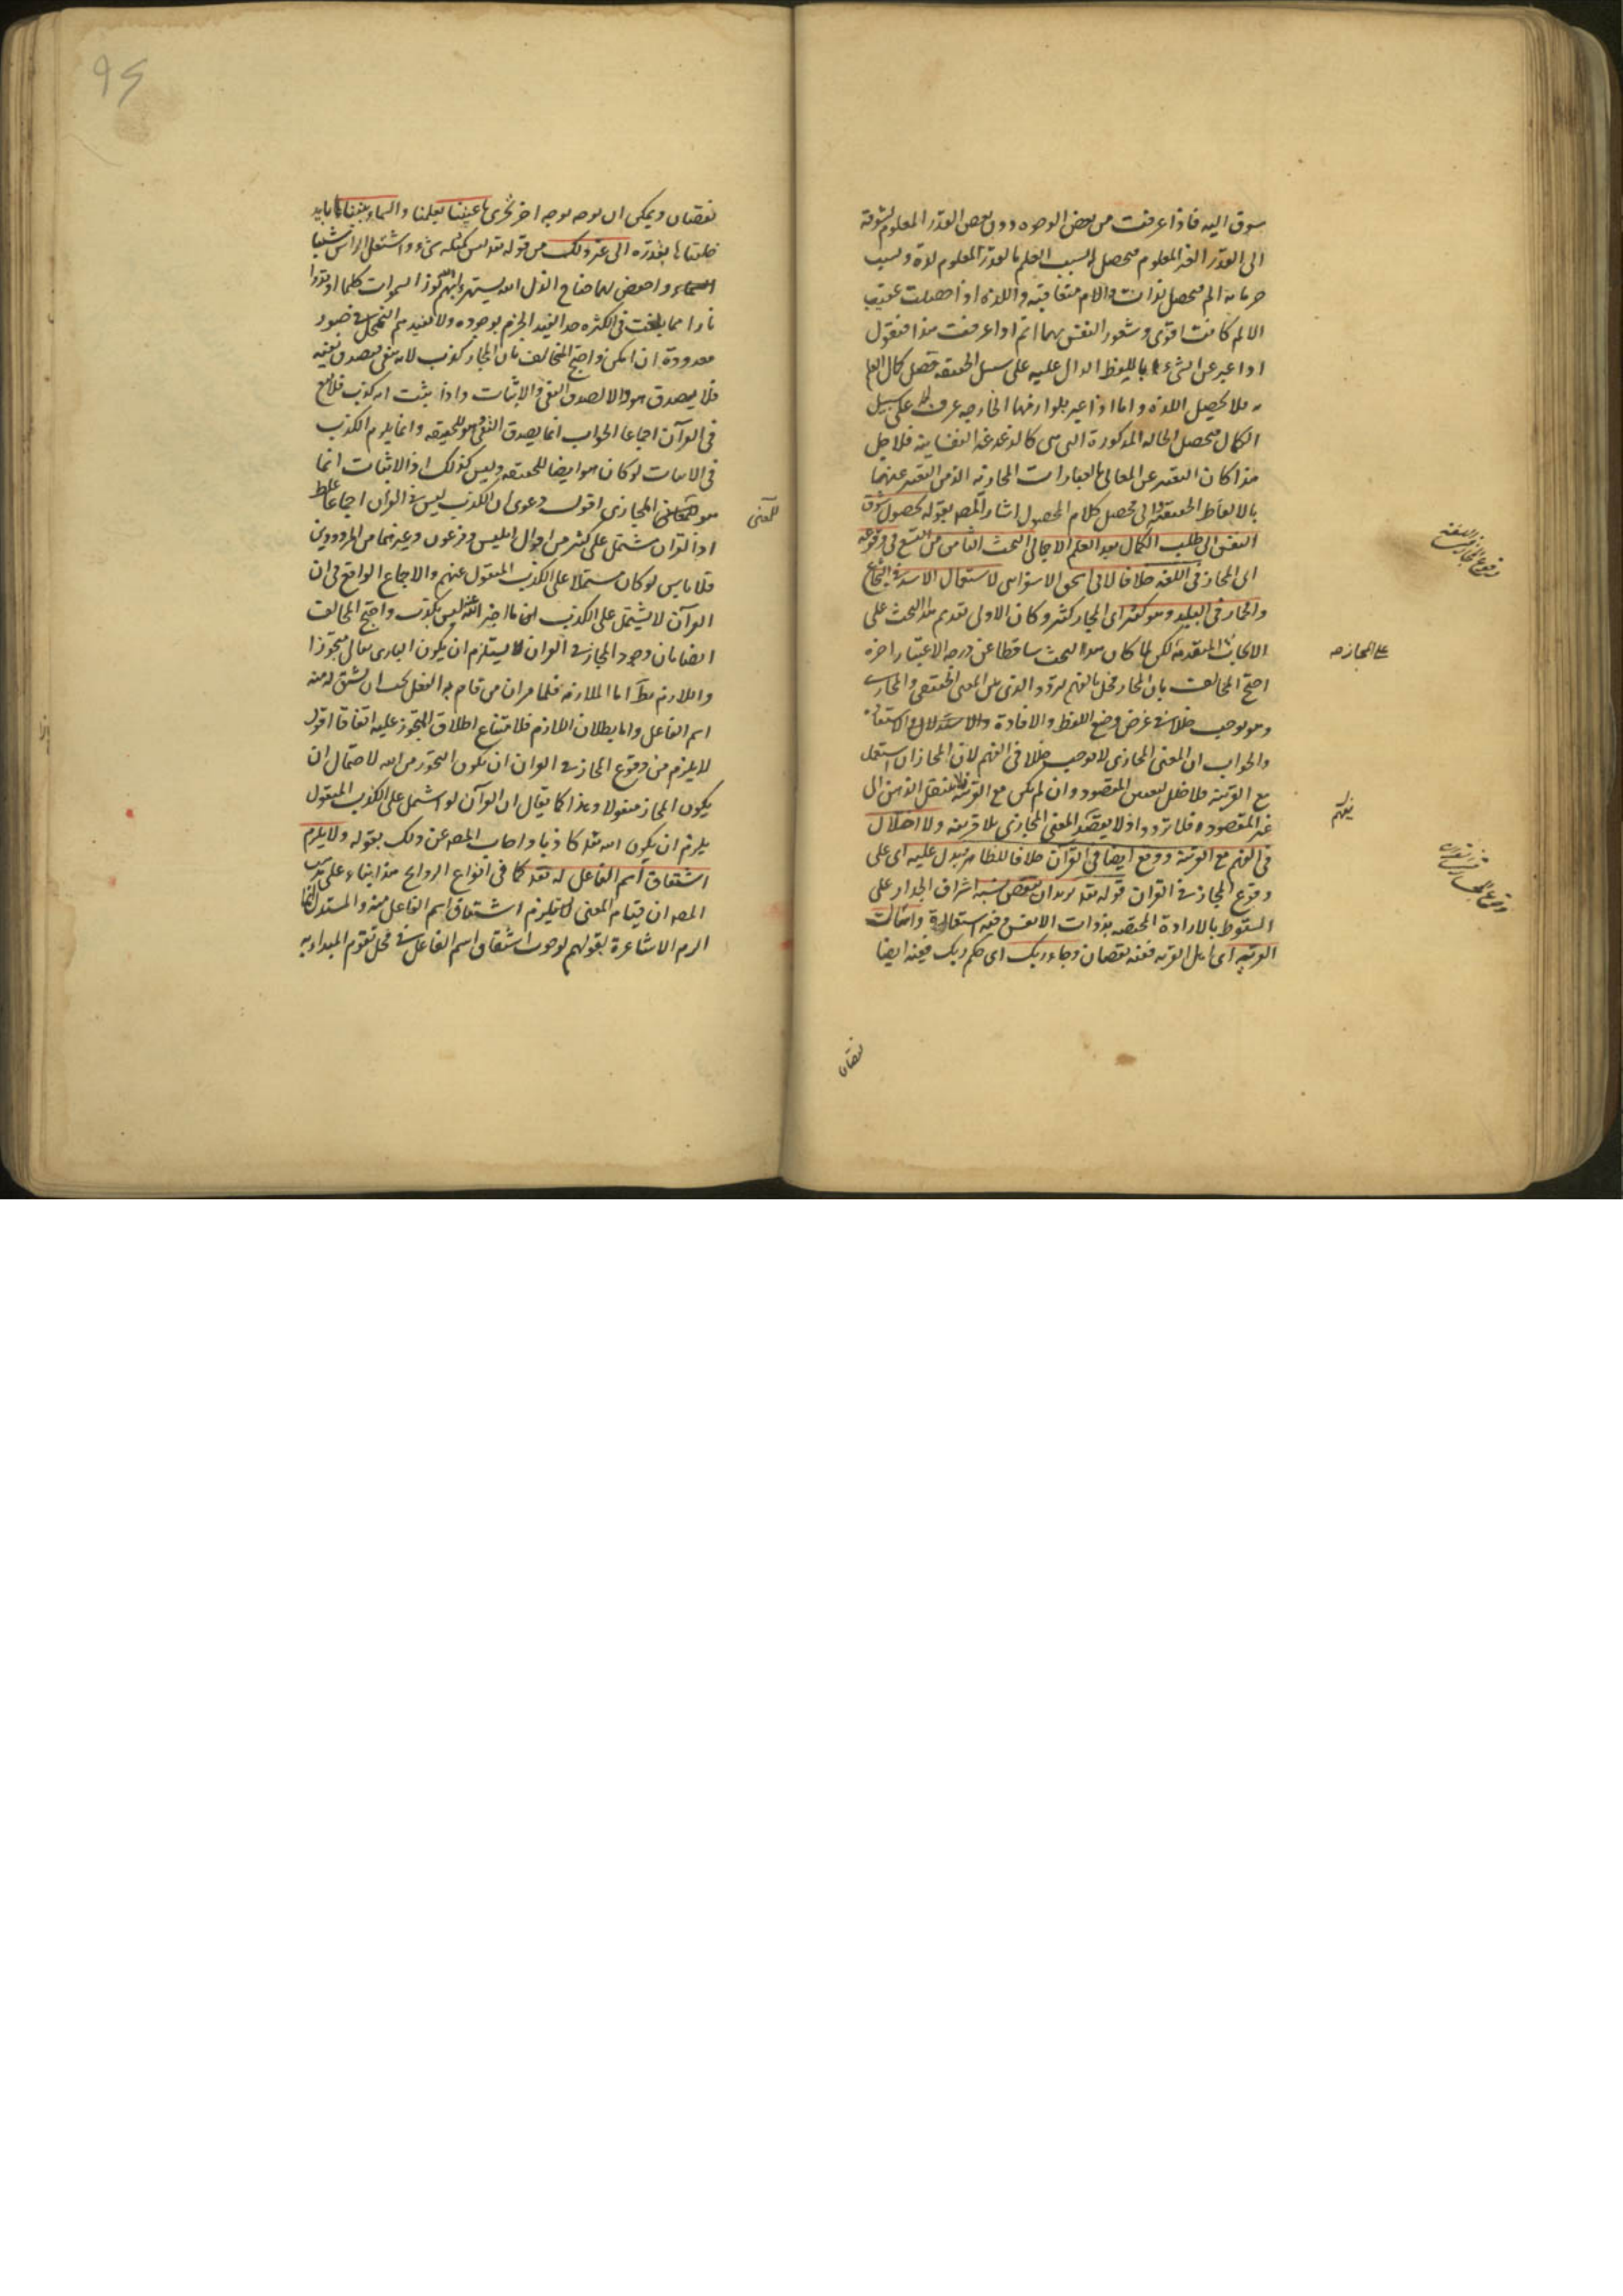 سوق اليه فاذا عرفت من بعض الوجوه دون بعض القدر المعلوم يشوقه
الى القدر الغير المعلوم فيحصل له بسبب العلم بالقدر المعلوم لذة وبسبب
حرمانه الم فيحصل لذات والام متعاقبة واللذة اذا حصلت عقيب
الالم كانت اقوى وشعور النفس بهما اتم اذا عرفت هذا فنقول
اذا عبر عن الشىء باللفظ الدال عليه على سبيل الحقيقة حصل كمال العلم
به فلا تحصل اللذة واما اذا عبر بلوازمها الخارجية عرف لا على سبيل
الكمال فتحصل الحالة المذكورة التى هى كالدغدغة النفسانية فلاجل
هذا كان التعبير عن المعانى بالعبارات المجازية الذ من التعبير عنها
بالالفاظ الحقيقية والى محصل كلام المحصول اشار المصه بقوله لحصول شوق
النفس الى طلب الكمال بعد العلم الاجمالى البحث الثامن من التسع فى وقوعه
اى المجاز فى اللغة خلافا لابى اسحق الاسفراينى لاستعمال الاسد فى الشجاع
والحمار فى البليد وهو كثير اى المجاز كثير وكان الاولى تقديم هذا البحث على
الابحاث المتقدمة لكن لما كان هذا البحث ساقطا عن درجة الاعتبار اخره
احتج المخالف بان المجاز مخل بالفهم لتردد الذهن بين المعنى الحقيقى والمجازى
وهو يوجب خللا فى غرض وضع اللفظ والافادة والاستدلال والاستفادة
والجواب ان المعنى المجازى لا يوجب خللا فى الفهم لان المجاز ان استعمل
مع القرينة فلا خلل لتعين المقصود وان لم يكن مع القرينة فلا ينتقل الذهن الى
غير المقصود فلا تردد اذ لا يقصد المعنى المجازى بلا قرينة ولا اخلال
فى الفهم مع القرينة ووقع ايضا فى القرآن خلافا للظاهرية يدل عليه اى على
وقوع المجاز فى القران قوله تعه يريد ان ينقض شبه اشراف الجدار على
السقوط بالارادة المختصة بذوات الانفس وفيه استعارة واسئل
القرية اى اهل القرية ففيه نقصان وجاء ربك اى حكم ربك ففيه ايضا
نقصان
وقوع المجاز فى اللغة
على المجاز صه
يفهم
وقوع المجاز فى القران
نقصان ويمكن ان يوجه بوجه اخر تجرى باعيننا بعلمنا والسماء بنيناها بايد
خلقناها بقدرة الى غير ذلك من قوله تعه ليس كمثله شىء واشتعل الراس شيبا
واخفض لهما جناح الذل الله يستهزئ بهم الله نور السموات كلما اوقدوا
نارا مما بلغت فى الكثرة حدا يفيد الجزم بوجوده ولا يفيدهم التمحل فى صور
معدودة ان امكن واحتج المخالف بان المجاز كذب لانه ينفى فيصدق نفيه
فلا يصدق هو والا لصدق النفى والاثبات واذا ثبت انه كذب فلا يقع
فى القرآن اجماعا الجواب انما يصدق النفى هو للحقيقة وانما يلزم الكذب
فى الاثبات لو كان هو ايضا للحقيقة وليس كذلك اذ الاثبات انما
هو المجازى اقول دعوى ان الكذب ليس فى القران اجماعا غلط
اذ القران مشتمل على كثير من اقوال ابليس وفرعون وغيرهما من المردودين
فلا باس لو كان مشتملا على الكذب المنقول عنهم والاجماع الواقع فى ان
القرآن لا يشتمل على الكذب اى ما اخبر الله عنه ليس بكذب واحتج المخالف
ايضا بان وجود المجاز فى القران لا يستلزم ان يكون البارى تعالى متجوزا
واللازم بط اما الملازمة فلما مر ان من قام به الفعل يجب ان يشتق له منه
اسم الفاعل واما بطلان اللازم فلامتناع اطلاق المتجوز عليه اتفاقا اقول
لا يلزم من وقوع المجاز فى القران ان يكون التجوز من الله لاحتمال ان
يكون المجاز منقولا وهذا كما يقال ان القرآن لو اشتمل على الكذب المنقول
يلزم ان يكون الله تعه كاذبا واجاب المصه عن ذلك بقوله ولا يلزم
اشتقاق اسم الفاعل له تعه كما فى انواع الروايح هذا بناء على مذهب
المصه ان قيام المعنى لا يلزم اشتقاق اسم الفاعل منه والمستدل انما
الزم الاشاعرة بقولهم بوجوب اشتقاق اسم الفاعل فى محل تقوم المبداء به
للمعنى